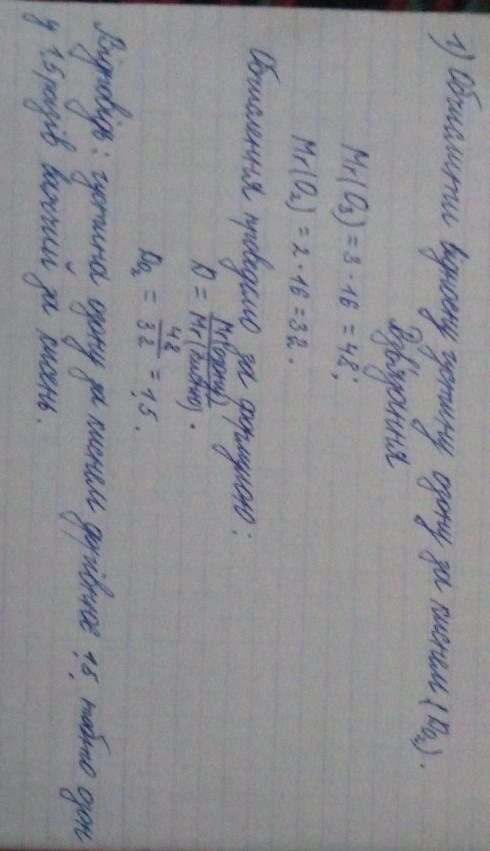 1) Обчислити відносну густину озону за киснем (D₀₂).
Розв'язання
Mr(O₃) = 3 · 16 = 48;
Mr(O₂) = 2 · 16 = 32.
Обчислення проведемо за формулою:
D = Mr(озону) / Mr(кисню).
D₀₂ = 48 / 32 = 1,5.
Відповідь: густина озону за киснем дорівнює 1,5, тобто озон
у 1,5 разів важчий за кисень.